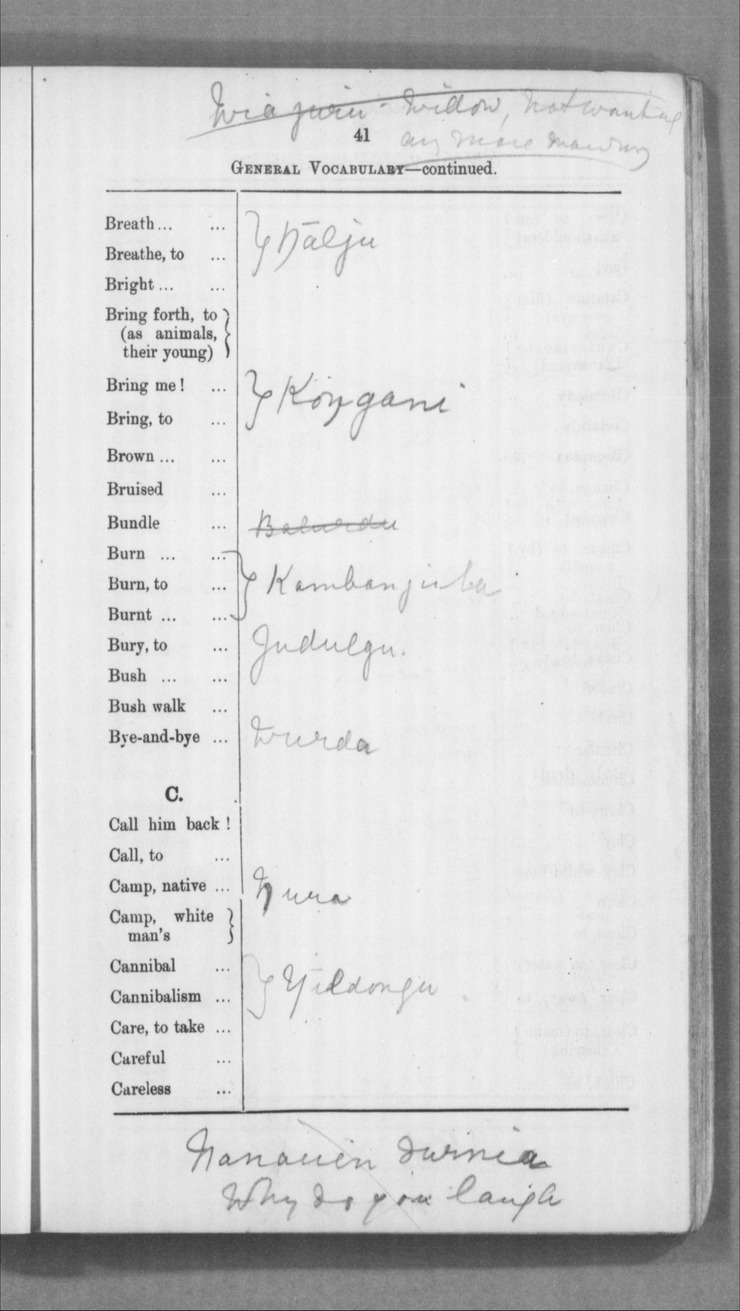 Wia juin - Widow, not wanting
41
any more
GENERAL VOCABULARY—continued.
Breath ... ... } Ngālju
Breathe, to ...
Bright ... ...
Bring forth, to
(as animals,
their young) }
Bring me! ... } Kongani
Bring, to ...
Brown ... ...
Bruised ...
Bundle ... Balurdu
Burn ... ... } Kambanjuba
Burn, to ...
Burnt ... ...
Bury, to ... Judulgu.
Bush ... ...
Bush walk ...
Bye-and-bye ... Wurda
C.
Call him back !
Call, to ...
Camp, native ... Ngura
Camp, white
man's }
Cannibal ... } Yildongu
Cannibalism ...
Care, to take ...
Careful ...
Careless ...
Nanauin durnia
Why do you laugh